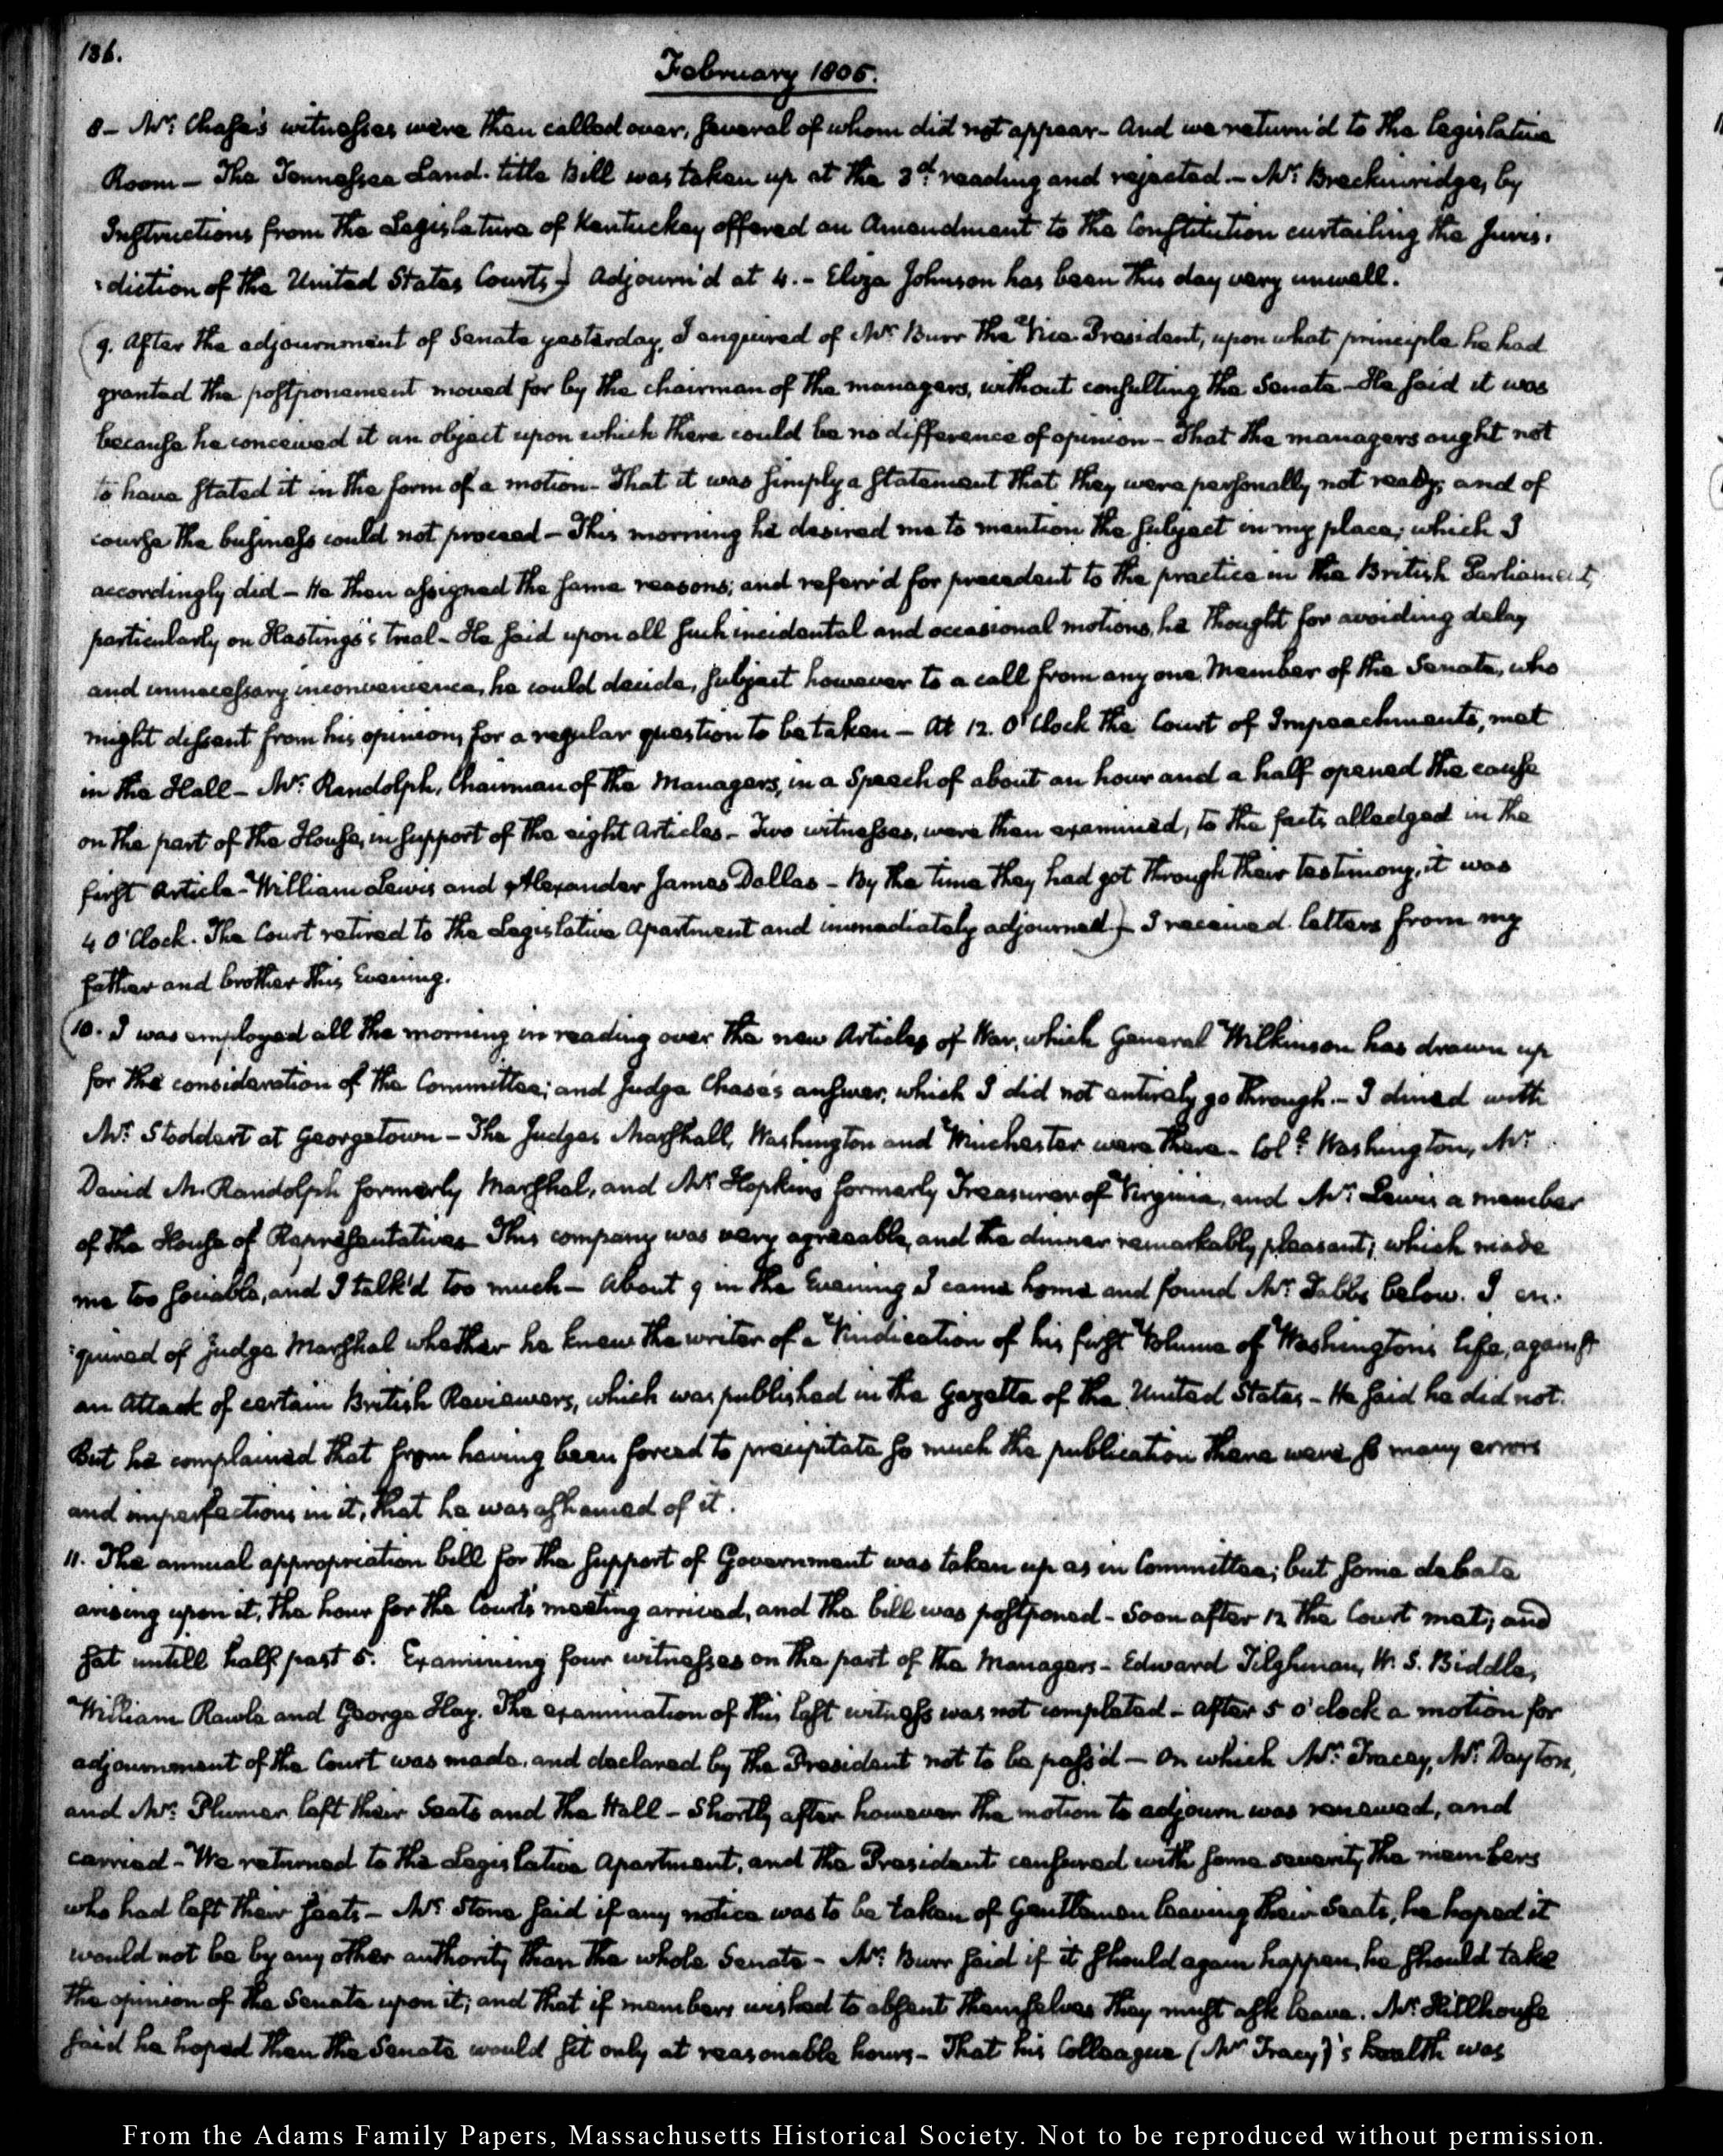 186.
February 1805.
8 - Mr. Chase's witnesses were then called over, several of whom did not appear - And we return'd to the legislative
Room - The Tennessee Land-title Bill was taken up at the 3d. reading and rejected. - Mr. Breckinridge, by
Instructions from the Legislature of Kentuckey offered an Amendment to the Constitution curtailing the juris-
-diction of the United States Courts -) Adjourn'd at 4. - Eliza Johnson has been this day very unwell.
(9. After the adjournment of Senate yesterday, I enquired of Mr. Burr the Vice-President, upon what principle he had
granted the postponement moved for by the chairman of the managers, without consulting the Senate - He said it was
because he conceived it an object upon which there could be no difference of opinion - That the managers ought not
to have stated it in the form of a motion - That it was simply a statement that they were personally not ready; and of
course the business could not proceed - This morning he desired me to mention the subject in my place; which I
accordingly did - He then assigned the same reasons; and referr'd for precedent to the practice in the British Parliament,
particularly on Hastings's trial - He said upon all such incidental and occasional motions, he thought for avoiding delay
and unnecessary inconvenience, he could decide, subject however to a call from any one Member of the Senate, who
might dissent from his opinion, for a regular question to be taken - At 12. O'Clock the Court of Impeachments, met
in the Hall - Mr. Randolph, Chairman of the Managers, in a Speech of about an hour and a half opened the cause
on the part of the House, in support of the eight Articles - Two witnesses, were then examined, to the facts alledged in the
first Article - William Lewis and Alexander James Dallas - By the time they had got through their testimony, it was
4 O'Clock. The Court retired to the Legislative Apartment and immediately adjourned) - I received letters from my
father and brother this Evening.
(10. I was employed all the morning in reading over the new Articles of War, which General Wilkinson has drawn up
for the consideration of the Committee; and Judge Chase's answer, which I did not entirely go through. - I dined with
Mr. Stoddert at Georgetown - The Judges Marshall, Washington and Winchester were there - Coll. Washington, Mr.
David M. Randolph formerly Marshal, and Mr. Hopkins formerly Treasurer of Virginia, and Mr. Lewis a member
of the House of Representatives - This company was very agreeable, and the dinner remarkably pleasant; which made
me too sociable, and I talk'd too much - About 9 in the Evening I came home and found Mr. Tabbs below. I en-
-quired of Judge Marshal whether he knew the writer of a Vindication of his first Volume of Washington's life, against
an Attack of certain British Reviewers, which was published in the Gazette of the United States - He said he did not.
But he complained that from having been forced to precipitate so much the publication there were so many errors
and imperfections in it, that he was ashamed of it.
11. The annual appropriation bill for the support of Government was taken up as in Committee; but some debate
arising upon it, the hour for the Court's meeting arrived, and the bill was postponed - Soon after 12 the Court met; and
sat untill half past 5. Examining four witnesses on the part of the Managers - Edward Tilghman, W. S. Biddle,
William Rawle and George Hay. The examination of this last witness was not completed - After 5 o'clock a motion for
adjournment of the Court was made, and declared by the President not to be pass'd - On which Mr. Tracey, Mr. Dayton,
and Mr. Plumer left their Seats and the Hall - Shortly after however the motion to adjourn was renewed, and
carried - We returned to the Legislative Apartment, and the President censured with some severity the members
who had left their seats - Mr. Stone said if any notice was to be taken of Gentlemen leaving their Seats, he hoped it
would not be by any other authority than the whole Senate - Mr. Burr said if it should again happen, he should take
the opinion of the Senate upon it; and that if members wished to absent themselves they must ask leave. Mr. Hillhouse
said he hoped then the Senate would sit only at reasonable hours - That his Colleague (Mr. Tracy)'s health was
From the Adams Family Papers, Massachusetts Historical Society. Not to be reproduced without permission.